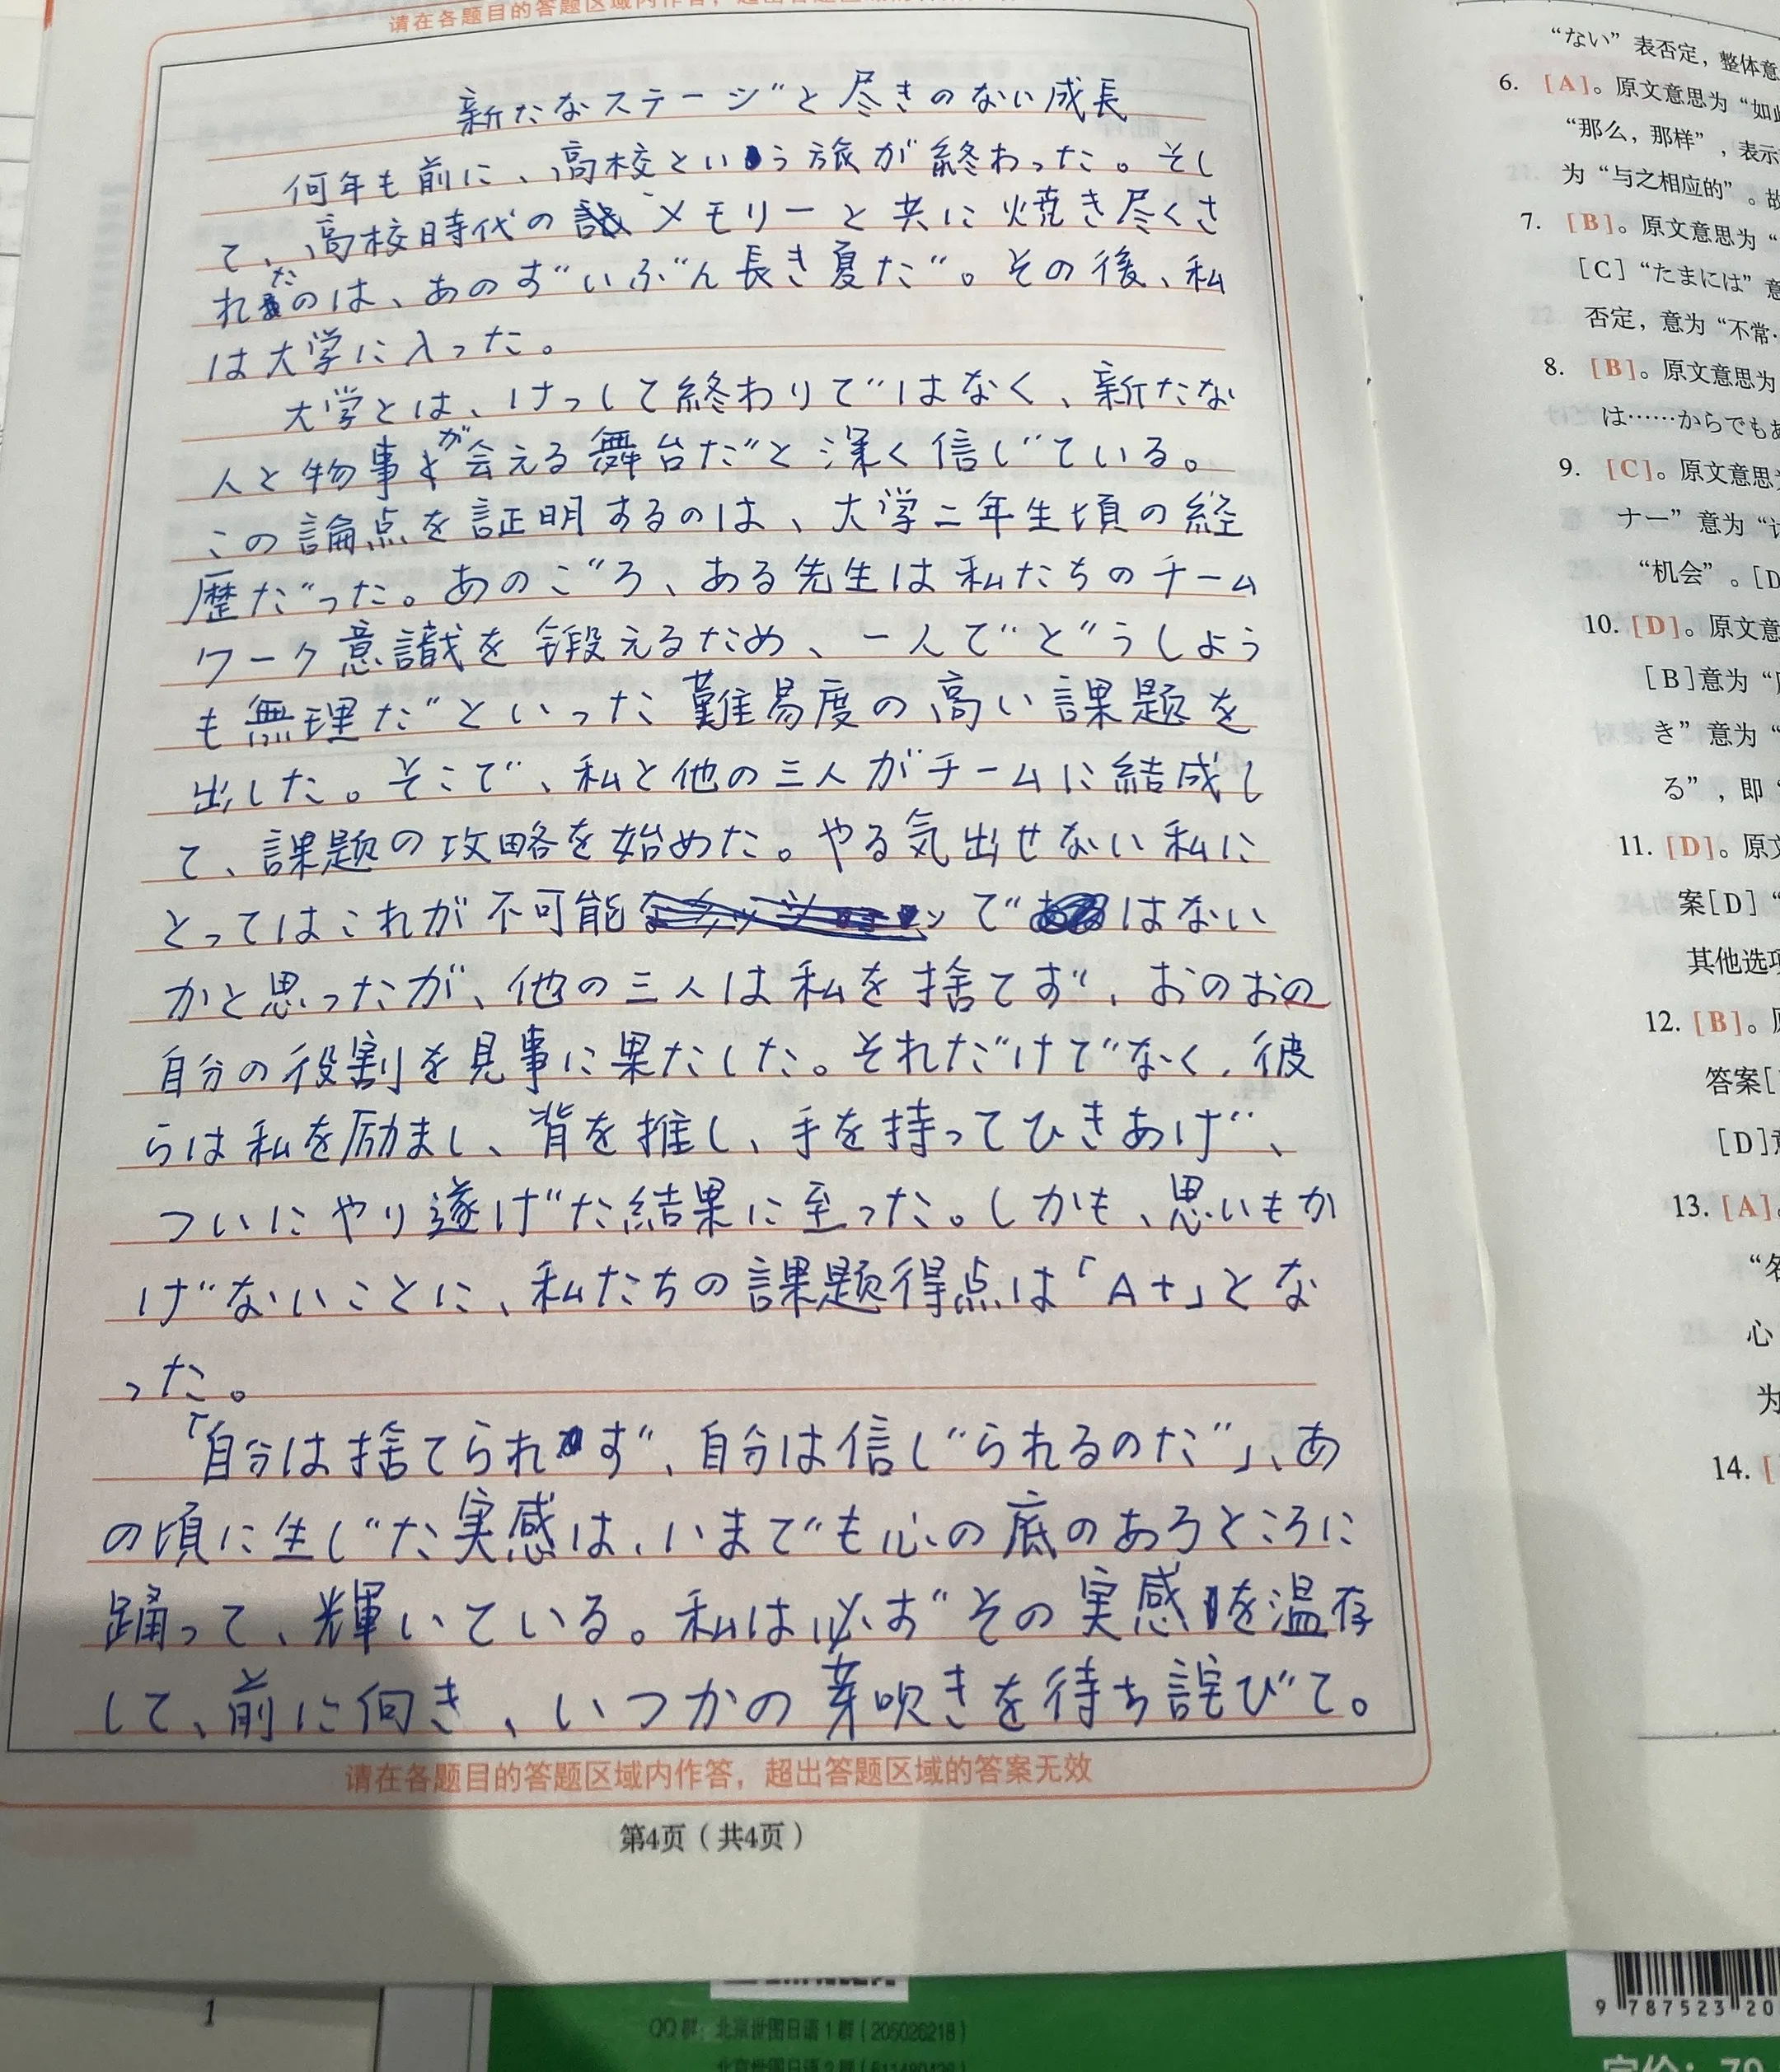 请在各题目的答题区域内作答，超出答题区域的
新たなステージと尽きのない成長
何年も前に、高校という旅が終わった。そし
て、高校時代のメモリーと共に焼き尽くさ
れたのは、あのずいぶん長き夏だ。その後、私
は大学に入った。
大学とは、けっして終わりではなく、新たな
人と物事が会える舞台だと深く信じている。
この論点を証明するのは、大学二年生頃の経
歴だった。あのごろ、ある先生は私たちのチーム
ワーク意識を鍛えるため、一人でどうしよう
も無理だといった難易度の高い課題を
出した。そこで、私と他の三人がチームに結成し
て、課題の攻略を始めた。やる気出せない私に
とってはこれが不可能ではない
かと思ったが、他の三人は私を捨てず、おのおの
自分の役割を見事に果たした。それだけでなく、彼
らは私を励まし、背を推し、手を持ってひきあげ、
ついにやり遂げた結果に至った。しかも、思いもか
げないことに、私たちの課題得点は「A+」とな
った。
「自分は捨てられず、自分は信じられるのだ」、あ
の頃に生じた実感は、いまでも心の底のあるところに
踊って、輝いている。私は必ずその実感を温存
して、前に向き、いつかの芽吹きを待ち詫びて。
请在各题目的答题区域内作答，超出答题区域的答案无效
第4页（共4页）
“ない”表否定，整体意
6. [A]。原文意思为“如此
“那么，那样”，表示
为“与之相应的”。故
7. [B]。原文意思为“
[C]“たまには”意
否定，意为“不常
8. [B]。原文意思为
は……からでもあ
9. [C]。原文意思为
ナー”意为“
“机会”。[D
10. [D]。原文意
[B]意为“
き”意为“
る”，即“
11. [D]。原文
案[D]“
其他选项
12. [B]。
答案[
[D]意
13. [A]。
“名
心
为
14. [
1
QQ群：北京世图日语1群（205020218）
9 787523 20
定价：79